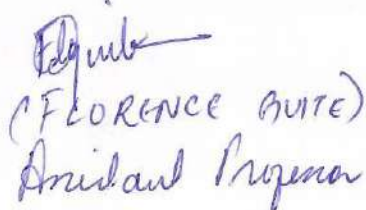 (FLORENCE GUITE)
Assistant Professor